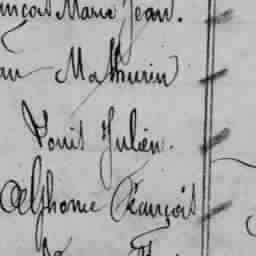 ançois Marie Jean.
Mathurin
Louis Julien.
Alphonse François